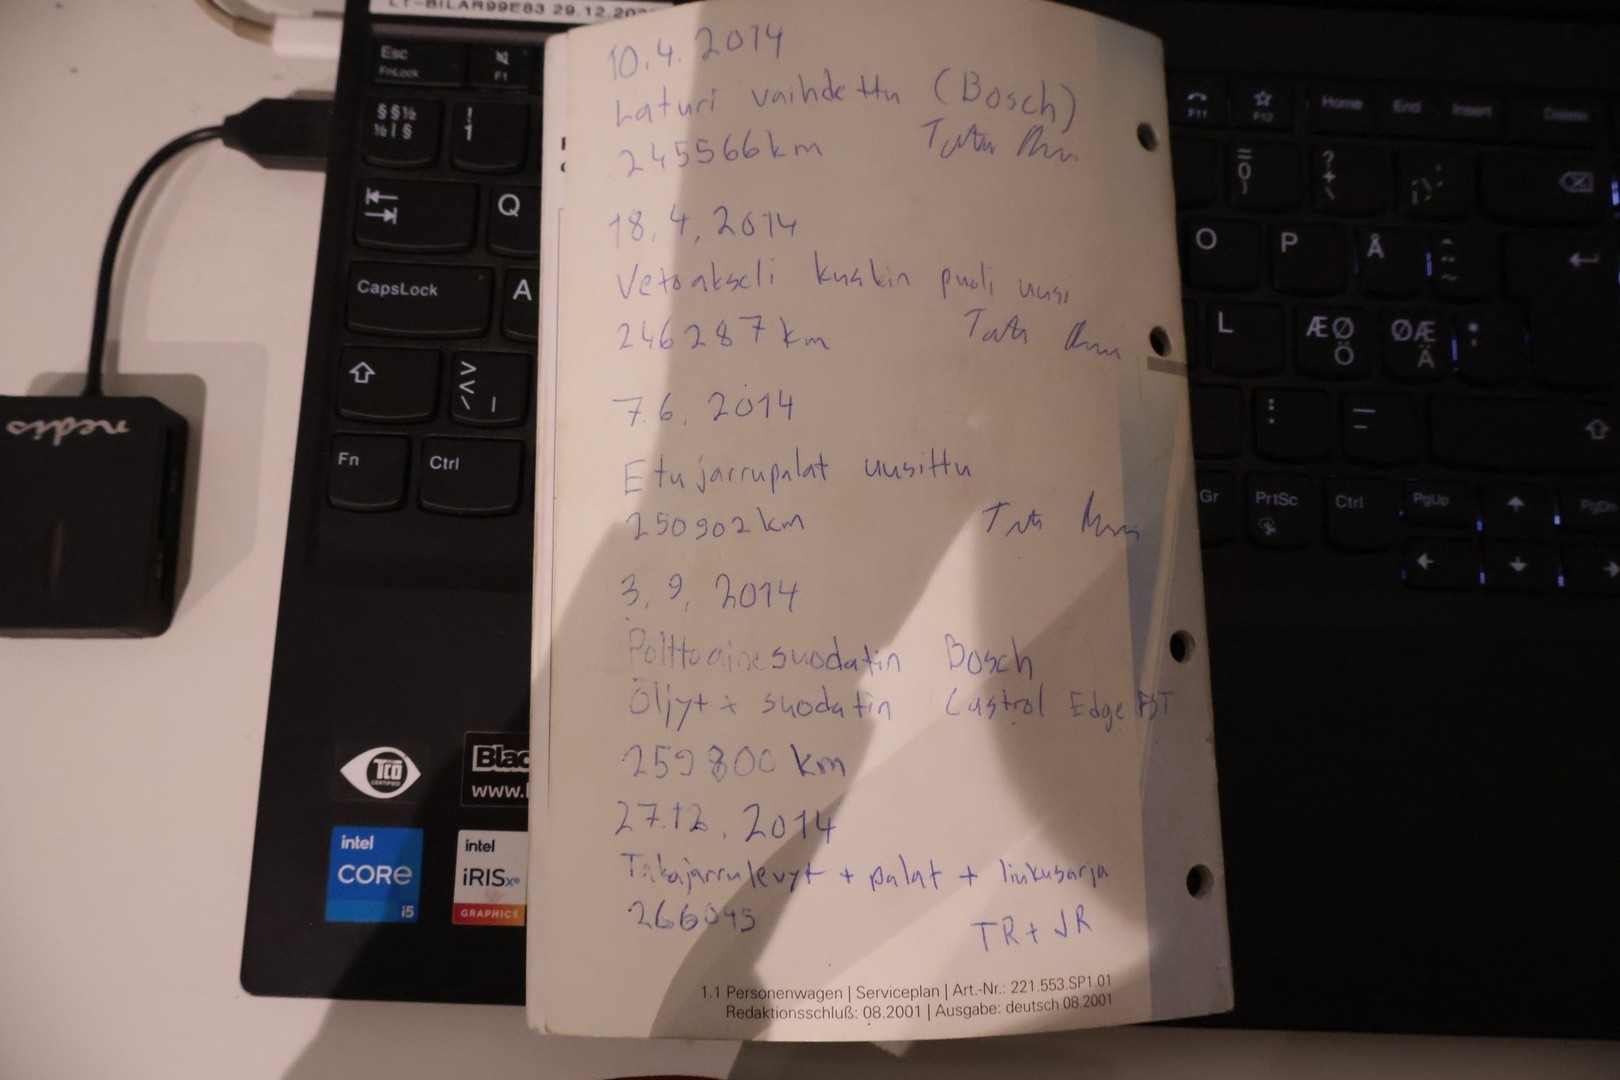 LT-BILAR99E83 29.12.20
10.4.2014
Laturi vaihdettu (Bosch)
245566km
18.4.2014
Vetoakseli kuskin puoli uusi
246287km
7.6.2014
Etujarrupalat uusittu
250902km
3.9.2014
Polttoainesuodatin Bosch
Öljyt + suodatin Castrol Edge FST
259800 km
27.12.2014
Takajarrulevyt + palat + liukusarja
266045
TR + JR
1.1 Personenwagen | Serviceplan | Art.-Nr.: 221.553.SP1.01
Redaktionsschluß: 08.2001 | Ausgabe: deutsch 08.2001
Esc
FnLock
F1
§§½
½|§
!
1
Q
CapsLock
A
>
<
\ |
Fn
Ctrl
nedis
TCO
CERTIFIED
Blac
www.
intel
CORE
i5
intel
iRISxe
GRAPHICS
F11
F12
Home
End
Insert
Delete
=
0
}
?
+
\
O
P
Å
L
ÆØ
Ö
ØÆ
Ä
:
.
Gr
PrtSc
Ctrl
PgUp
PgDn